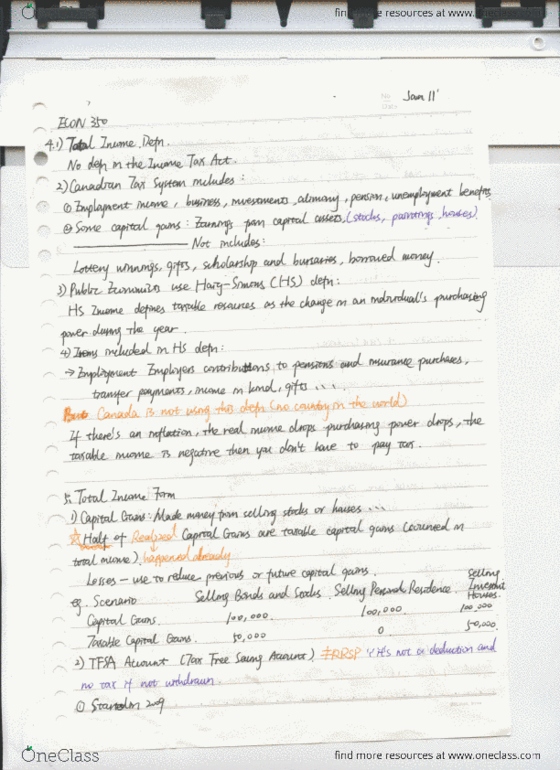 find more resources at www.
No.
Date
Jan 11
ECON 350
4.1) Total Income Defn.
No defn in the Income Tax Act.
2) Canadian Tax System includes:
① Employment income, business, investments, alimony, pension, unemployment benefits
② Some capital gains: Earnings from capital assets (stocks, paintings, houses).
Not includes:
Lottery winnings, gifts, scholarship and bursaries, borrowed money.
3) Public Economists use Haig-Simons (HS) defn:
HS Income defines taxable resources as the change in an individual's purchasing
power during the year.
4) Items included in HS defn:
→ Employment Employers contributions to pensions and insurance purchases,
transfer payments, income in kind, gifts ....
But Canada is not using this defn (no country in the world)
If there's an inflation, the real income drops purchasing power drops, the
taxable income is negative then you don't have to pay tax.
5. Total Income Form
1) Capital Gains: Made money from selling stocks or houses ...
☆ Half of Realized Capital Gains are taxable capital gains (counted in
total income) happened already
Losses - use to reduce previous or future capital gains.
eg. Scenario Selling Bonds and Stocks. Selling Personal Residence. Selling Investment Houses.
Capital Gains. 100,000. 100,000 100,000
Taxable Capital Gains. 50,000 0 50,000.
2) TFSA Account (Tax Free Saving Account) ≠RRSP It's not a deduction and
no tax if not withdrawn.
① Started in 2009
OneClass
find more resources at www.oneclass.com